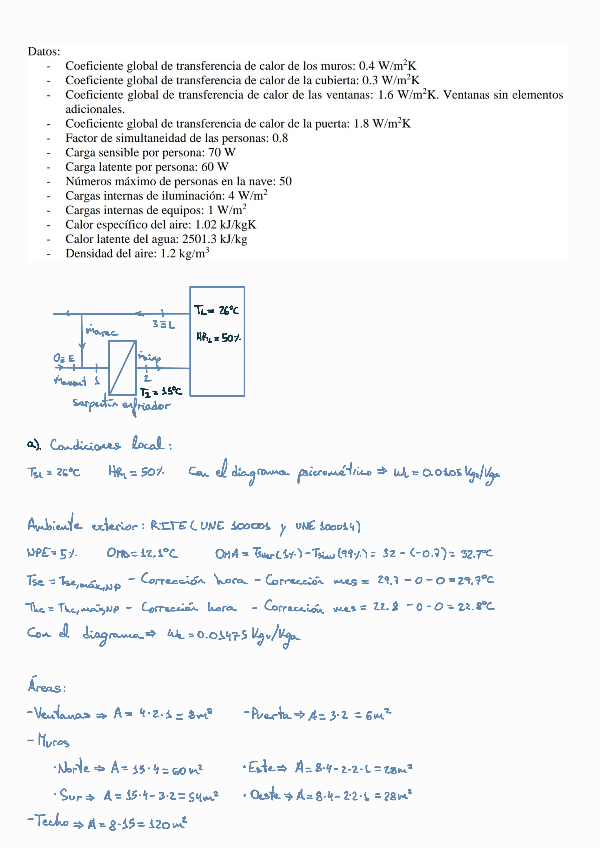 Datos:
- Coeficiente global de transferencia de calor de los muros: 0.4 W/m²K
- Coeficiente global de transferencia de calor de la cubierta: 0.3 W/m²K
- Coeficiente global de transferencia de calor de las ventanas: 1.6 W/m²K. Ventanas sin elementos
adicionales.
- Coeficiente global de transferencia de calor de la puerta: 1.8 W/m²K
- Factor de simultaneidad de las personas: 0.8
- Carga sensible por persona: 70 W
- Carga latente por persona: 60 W
- Números máximo de personas en la nave: 50
- Cargas internas de iluminación: 4 W/m²
- Cargas internas de equipos: 1 W/m²
- Calor específico del aire: 1.02 kJ/kgK
- Calor latente del agua: 2501.3 kJ/kg
- Densidad del aire: 1.2 kg/m³
TL = 26ºC
3 ≡ L
ṁarec
HRL = 50%
0 ≡ E
ṁimp
ṁavent 1
2
T2 = 15ºC
Serpentín enfriador
a). Condiciones local:
TSL = 26ºC HRL = 50% Con el diagrama psicrométrico ⇒ WL = 0.0105 Kgv/Kga
Ambiente exterior: RITE (UNE 100001 y UNE 100014)
NPE = 5% OMD = 12.1ºC OMA = Tsver(1%) - Tsinv(99%) = 32 - (-0.7) = 32.7ºC
Tse = Tse,máx,NP - Corrección hora - Corrección mes = 29.7 - 0 - 0 = 29.7ºC
The = The,máx,NP - Corrección hora - Corrección mes = 22.8 - 0 - 0 = 22.8ºC
Con el diagrama ⇒ We = 0.01475 Kgv/Kga
Áreas:
- Ventanas ⇒ A = 4·2·1 = 8m² - Puerta ⇒ A = 3·2 = 6m²
- Muros
· Norte ⇒ A = 15·4 = 60m² · Este ⇒ A = 8·4 - 2·2·1 = 28m²
· Sur ⇒ A = 15·4 - 3·2 = 54m² · Oeste ⇒ A = 8·4 - 2·2·1 = 28m²
- Techo ⇒ A = 8·15 = 120m²